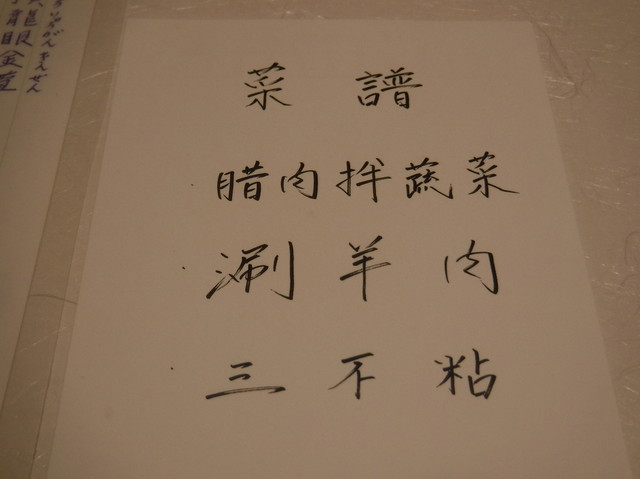 菜 譜
腊肉拌蔬菜
涮羊肉
三不粘